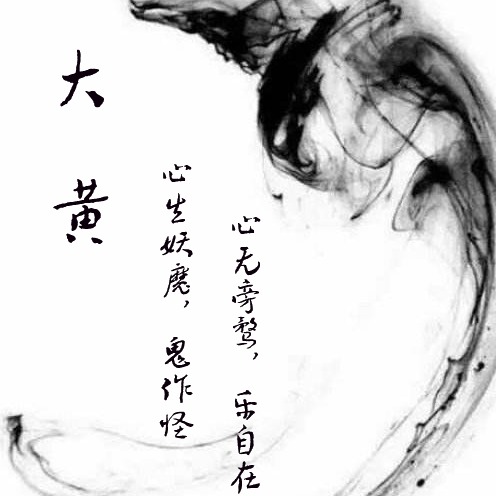 心无旁骛，乐自在
心生妖魔，鬼作怪
大黄